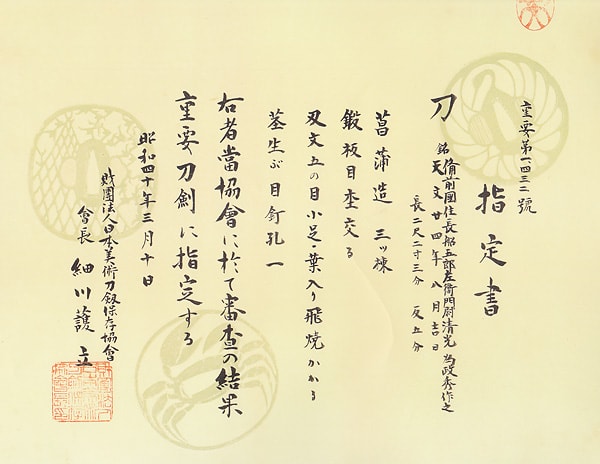 重要第一四三二號
指定書
刀 銘 備前國住長船五郎左衛門尉清光 為政秀作之
天文廿四年八月吉日
長二尺二寸三分 反五分
菖蒲造 三ッ棟
鍛板目杢交る
刃文五の目小足・葉入り飛焼かかる
茎生ぶ目釘孔一
右者當協會に於て審査の結果
重要刀劍に指定する
昭和四十年三月十日
財團法人日本美術刀剣保存協會
會長 細川護立